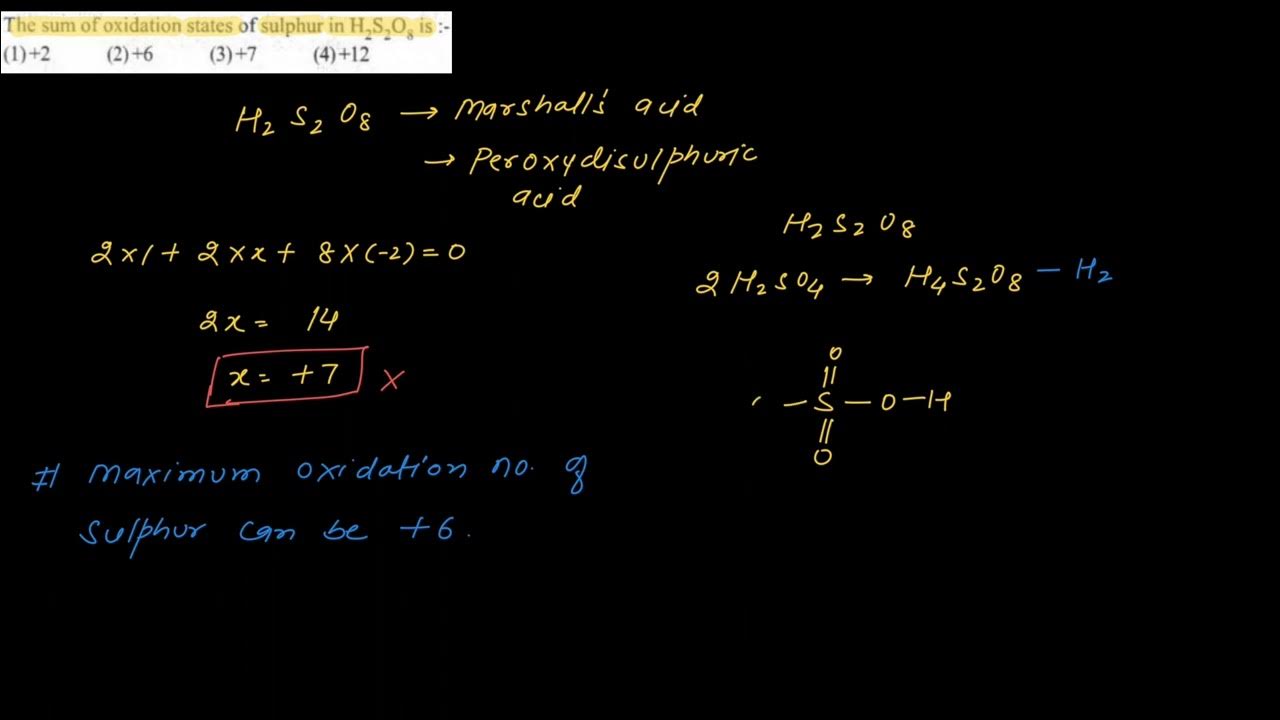 The sum of oxidation states of sulphur in H₂S₂O₈ is :-
(1)+2 (2)+6 (3)+7 (4)+12
H₂ S₂ O₈ → Marshall's acid
→ Peroxydisulphuric
acid
2×1 + 2×x + 8×(-2) = 0
2x = 14
x = +7 ×
# Maximum oxidation no. of
sulphur can be +6.
H₂ S₂ O₈
2 H₂SO₄ → H₄S₂O₈ — H₂
O
— S — O — H
O